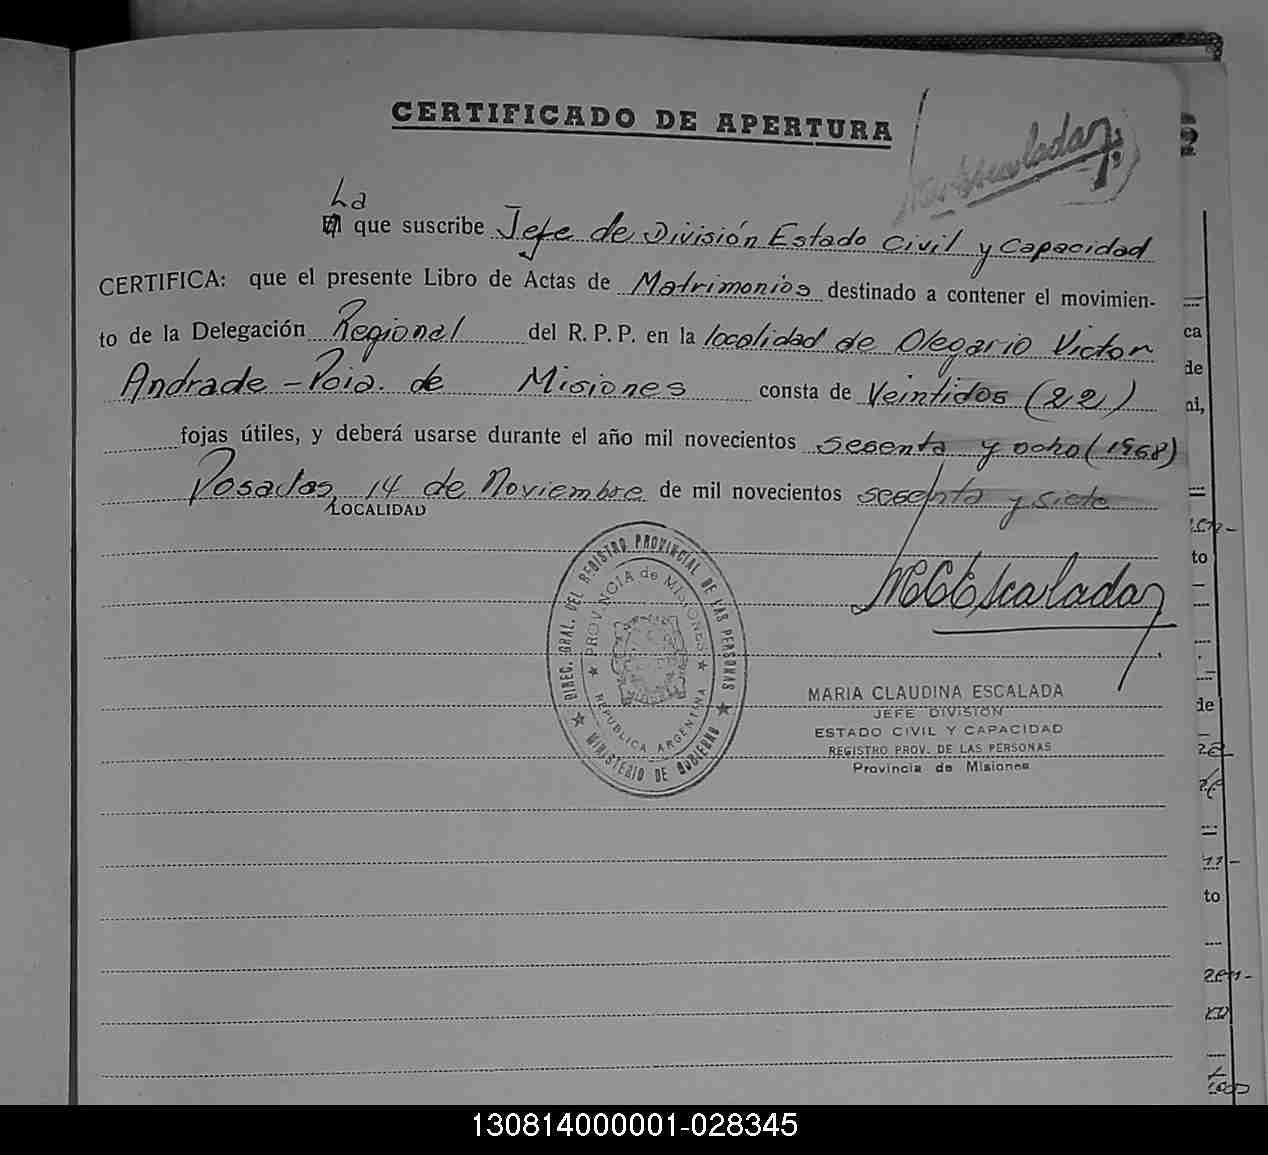 CERTIFICADO DE APERTURA
Escalada
2
La
El que suscribe Jefe de División Estado Civil y Capacidad
CERTIFICA: que el presente Libro de Actas de Matrimonios destinado a contener el movimien-
to de la Delegación Regional del R. P. P. en la localidad de Olegario Victor
Andrade - Pcia. de Misiones consta de Veintidos (22)
fojas útiles, y deberá usarse durante el año mil novecientos sesenta y ocho (1968)
Posadas, 14 de Noviembre de mil novecientos sesenta y siete
LOCALIDAD
DIREC. GRAL. DEL REGISTRO PROVINCIAL DE LAS PERSONAS
PROVINCIA de MISIONES
REPUBLICA ARGENTINA
MINISTERIO DE GOBIERNO
Escalada
MARIA CLAUDINA ESCALADA
JEFE DIVISION
ESTADO CIVIL Y CAPACIDAD
REGISTRO PROV. DE LAS PERSONAS
Provincia de Misiones
ca
de
ni,
to
de
to
130814000001-028345